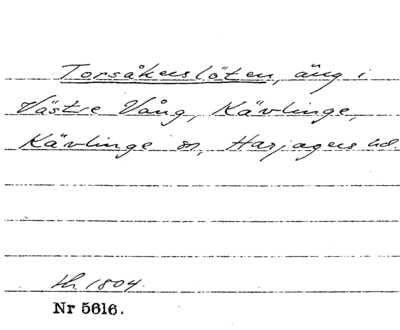 Torsåkerslöten, äng i
Västre Vång, Kävlinge,
Kävlinge sn, Harjagers hd.
th. 1804.
Nr 5616.